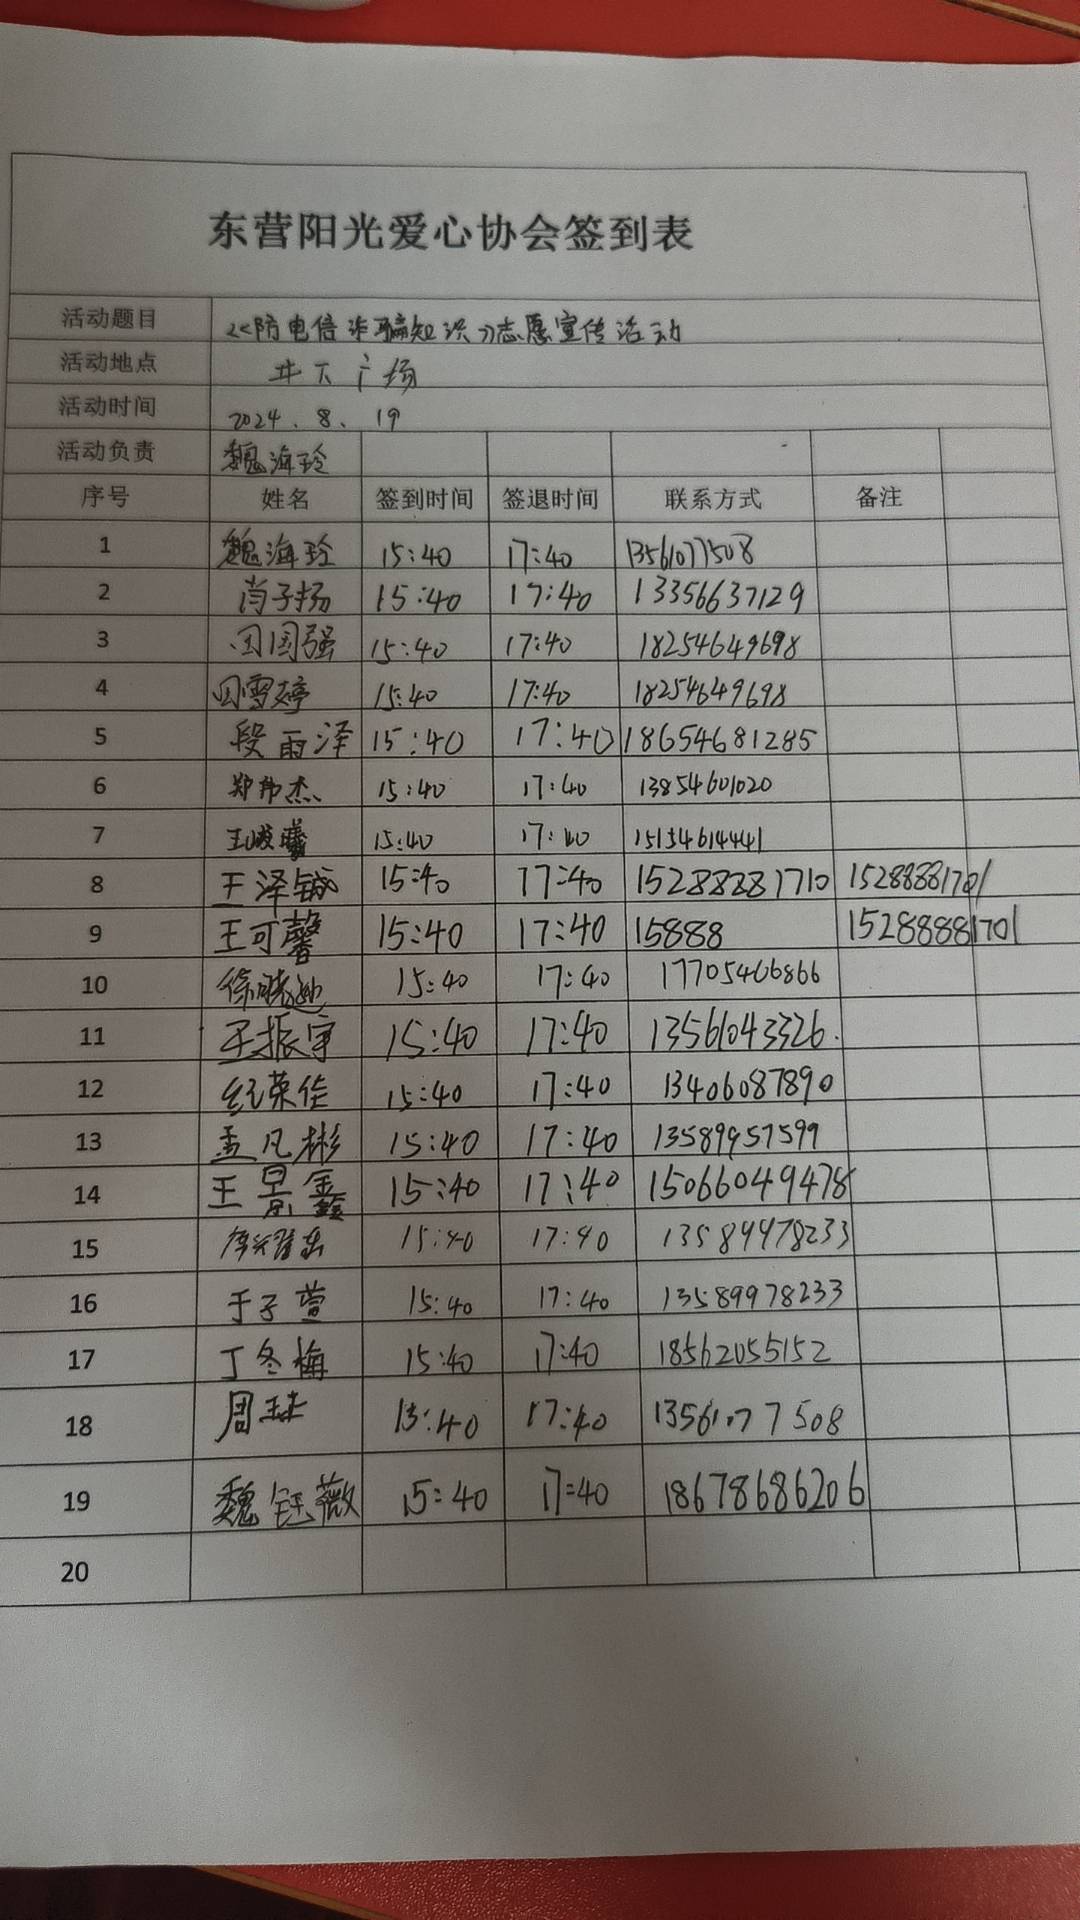 东营阳光爱心协会签到表
活动题目 《防电信诈骗知识》志愿宣传活动
活动地点 井下广场
活动时间 2024.8.19
活动负责 魏海玲
序号 姓名 签到时间 签退时间 联系方式 备注
1 魏海玲 15:40 17:40 13561077508
2 肖子扬 15:40 17:40 13356637129
3 田国强 15:40 17:40 18254649698
4 田雪婷 15:40 17:40 18254649698
5 段雨泽 15:40 17:40 18654681285
6 郑伟杰 15:40 17:40 13854601020
7 王峻曦 15:40 17:40
8 王泽铖 15:40 17:40 15288881710 15288881701
9 王可馨 15:40 17:40 15888 15288881701
10 徐晓 15:40 17:40 17705466866
11 王振宇 15:40 17:40 13561043326.
12 纪荣佳 15:40 17:40 13406087890
13 孟凡彬 15:40 17:40 13589957599
14 王景鑫 15:40 17:40 15066049478
15 15:40 17:40 13589978233
16 于子萱 15:40 17:40 13589978233
17 丁冬梅 15:40 17:40 18562055152
18 周 15:40 17:40 13561077508
19 魏钰薇 15:40 17:40 18678686206
20